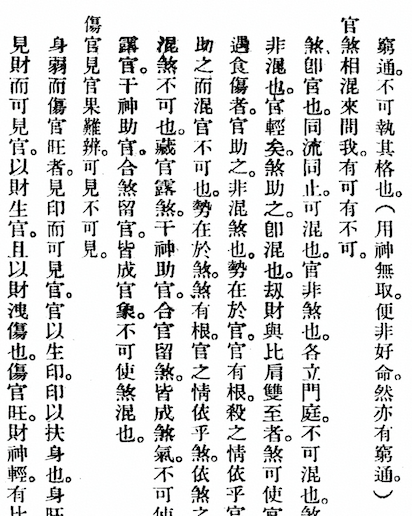 窮通。不可執其格也。（用神無取。便非好命。然亦有窮通。）
官煞相混來問我。有可有不可。
煞、卽官也。同流同止。可混也。官非煞也。各立門庭。不可混也。煞
非混也。官輕矣。煞助之。卽混也。刼財與比肩雙至者。煞可使官
遇食傷者。官助之。非混煞也。勢在於官。官有根。殺之情依乎官
助之而混官不可也。勢在於煞。煞有根。官之情依乎煞。依煞之
混煞不可也。藏官露煞。干神助官。合官留煞。皆成煞氣。不可使
露官。干神助官。合煞留官。皆成官象。不可使煞混也。
傷官見官果難辨。可見不可見。
身弱而傷官旺者。見印而可見官。官以生印。印以扶身也。身旺
見財而可見官。以財生官。且以財洩傷也。傷官旺。財神輕。有比